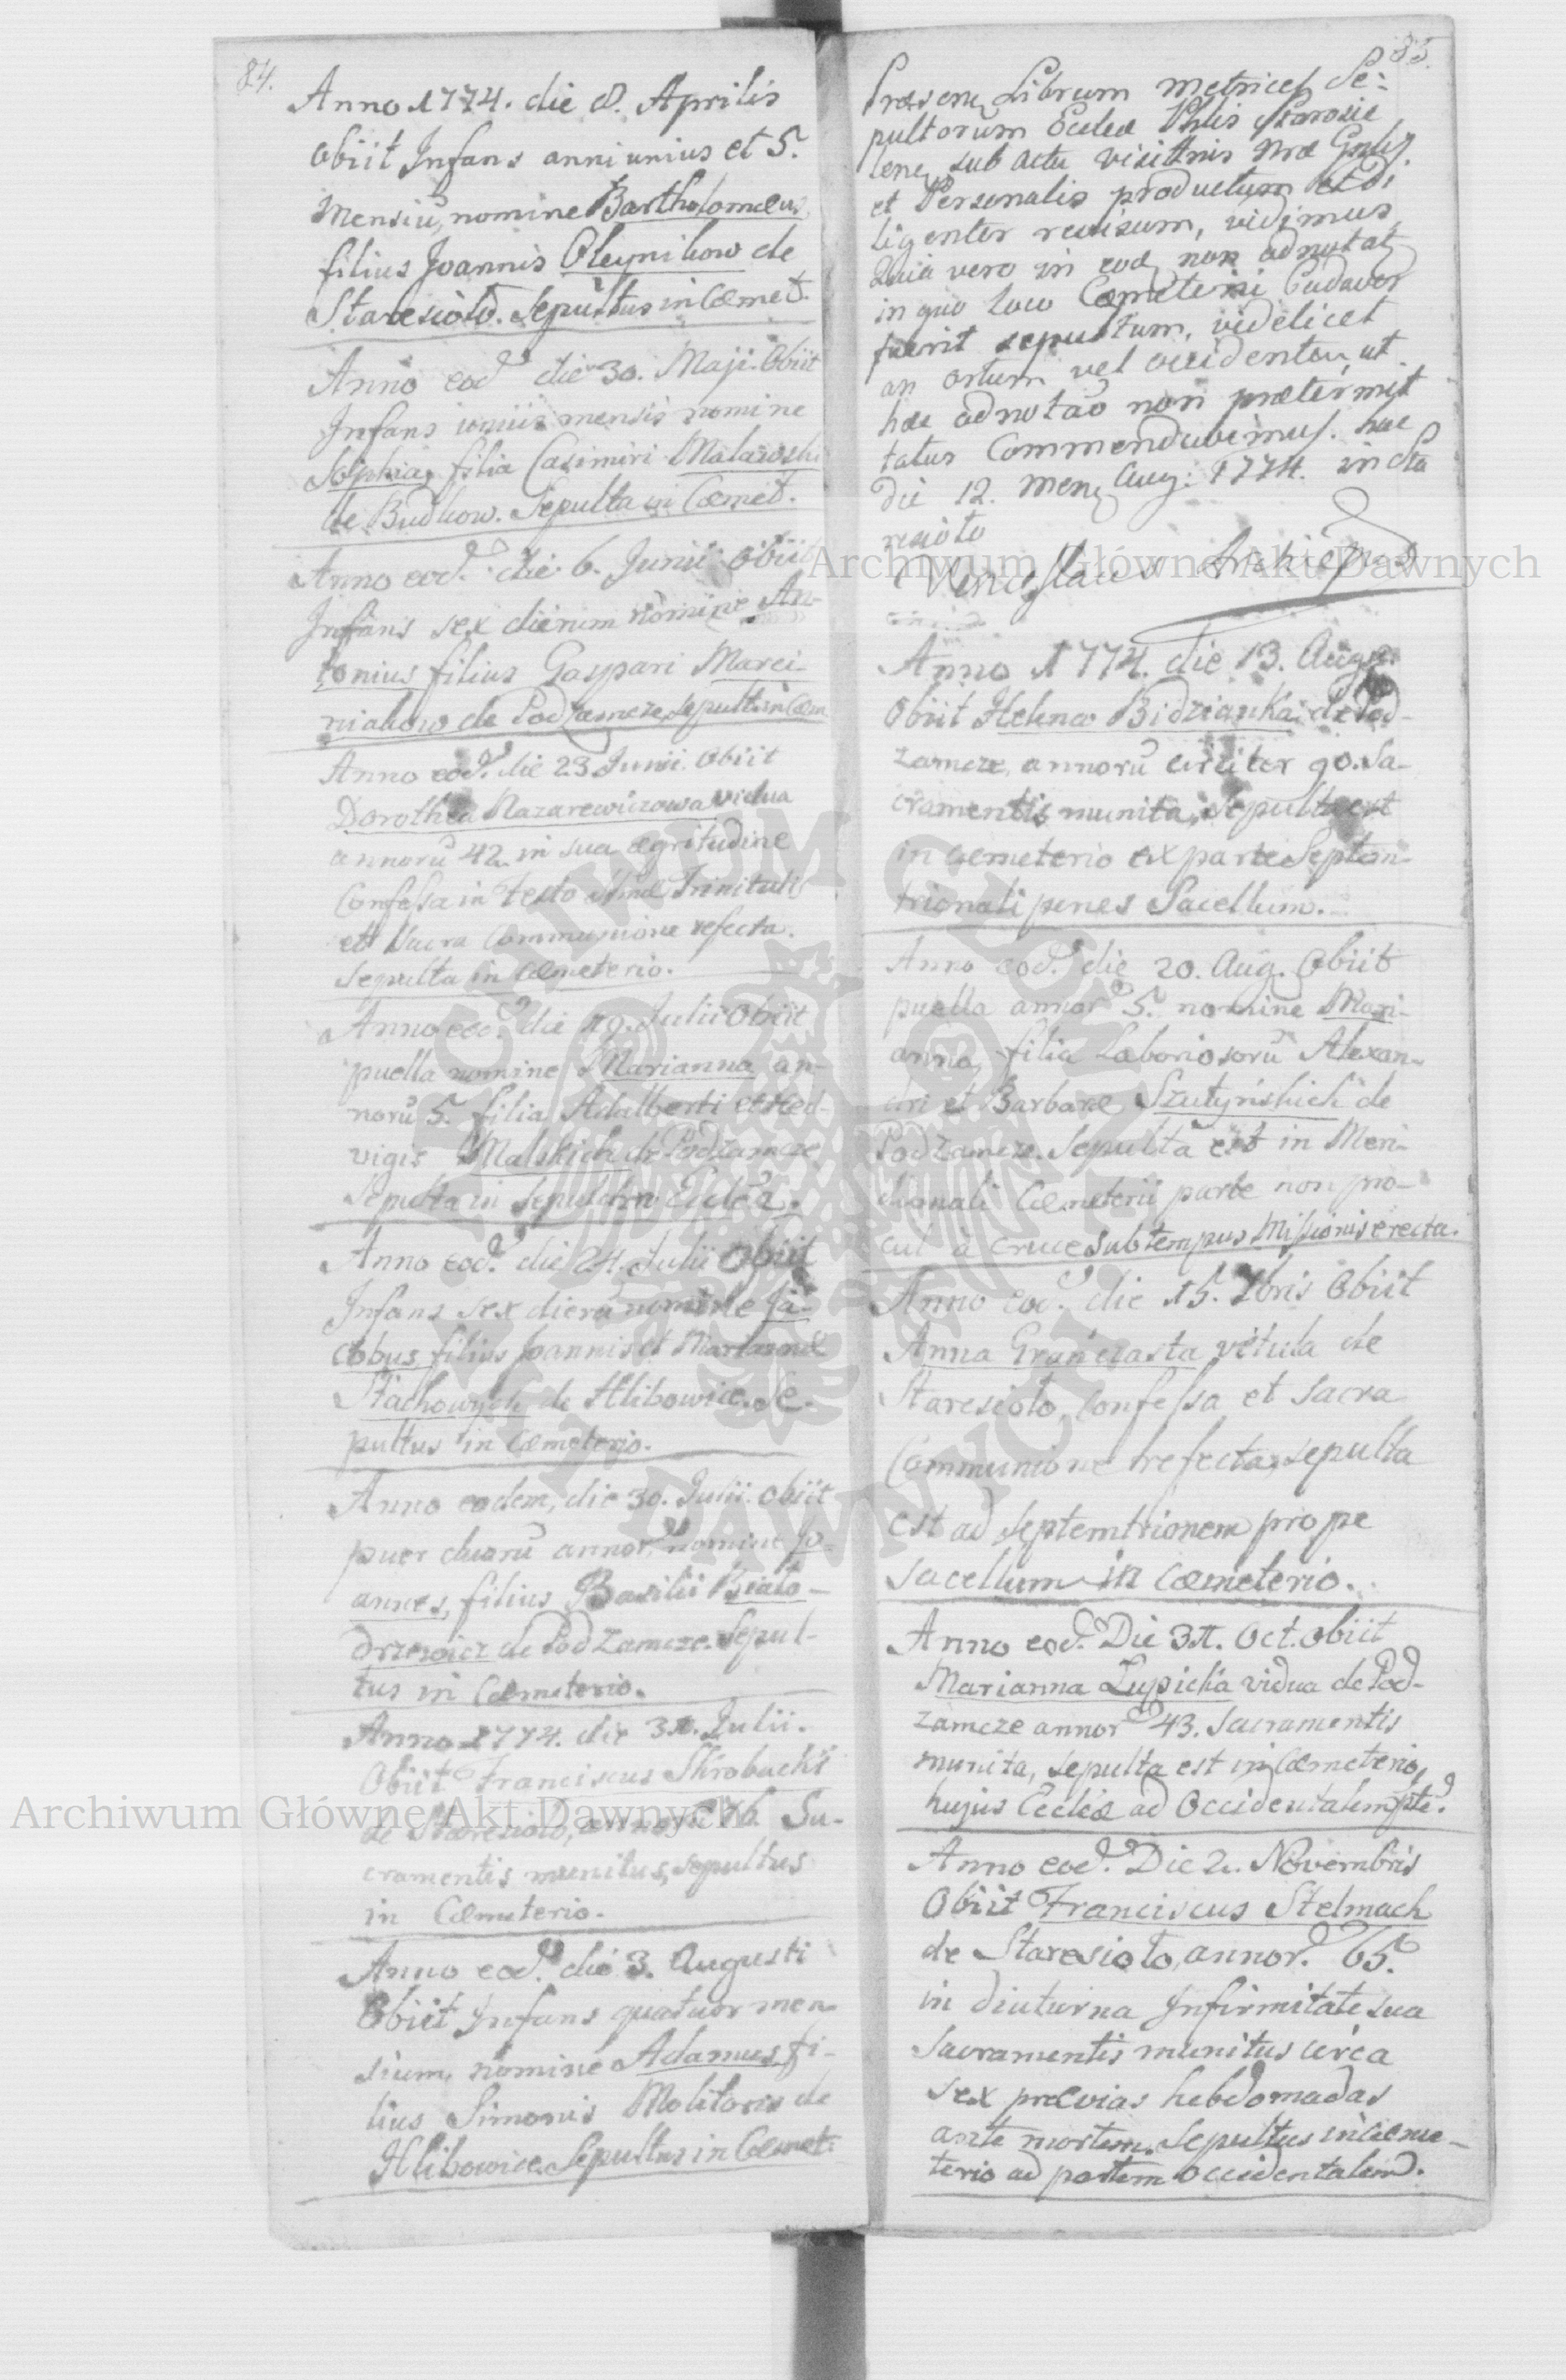 84.
Anno 1774. die 8. Aprilis
obiit Infans anni unius et 5.
Mensiū, nomine Bartholomæus
filius Joannis Oleynikow de
Staresioło. Sepultus in Cœmet.
Anno eod. die 30. Maji. Obiit
Infans unius mensis nomine
Sophia, filia Casimiri Malawski
de Budkow. Sepulta in Cœmet.
Anno eod. die 6. Junii obiit
Infans sex dierum nomine An-
tonius filius Gaspari Marci-
niakow de Podzamcze, sepult. in Cœm.
Anno eod. die 23. Junii. obiit
Dorothea Nazarewiczowa vidua
annorū 42. in sua ægritudine
Confessa in festo SSmæ Trinitatis
et Sacra Communione refecta.
Sepulta in Cœmeterio.
Anno eod. die 19. Julii Obiit
puella nomine Marianna an-
norū 5. filia Adalberti et Hed-
vigis Malskich de Podzamcze
Sepulta in Sepulchro Ecclæ.
Anno eod. die 24. Julii Obiit
Infans sex dierū nomine Ja-
cobus filius Joannis et Mariannæ
Stachowych de Hlibowice. Se-
pultus in Cœmeterio.
Anno eodem, die 30. Julii. obiit
puer duorū annor. nomine Jo-
annes, filius Basilii Biało-
drzewicz de Podzamcze. Sepul-
tus in Cœmeterio.
Anno 1774. die 31. Julii.
Obiit Franciscus Skrobacki
de Staresioło, annor. 76. Sa-
cramentis munitus, sepultus
in Cœmeterio.
Anno eod. die 3. Augusti
Obiit Infans quatuor men-
sium, nomine Adamus fi-
lius Simonis Molitoris de
Hlibowice. Sepultus in Cœmet.
85.
Præsenz Librum Metrices Se-
pultorum Eccleæ Phlis Starosie
lenz sub actu visittnis Nræ Gnlis
et Personalis productum et di
ligenter revisum, vidimus
Quia vero in eod non adnotatz
in quo loco Cæmeterii Cadaver
fuerit sepultum, videlicet
an ortum vel occidentem, ut
hæc adnotao non prætermit
tatur Commendavimus. hac
die 12. Menz Aug: 1774. in Sta
resioło
Venceslaus Archiepus
Anno 1774. die 13. Aug.
Obiit Helena Bidzianka de Pod-
zamcze, annorū circiter 90. Sa-
cramentis munita, Sepulta est
in Cœmeterio ex parte Septem-
trionali penes Sacellum.
Anno eod. die 20. Aug. Obiit
puella annor. 5. nomine Mari-
anna, filia Laboriosorū Alexan-
dri et Barbaræ Szutyńskich de
Podzamcze. Sepulta est in Meri-
dionali Cœmeterii parte non pro-
cul à cruce sub tempus Missionis erecta.
Anno eod. die 15. 7bris Obiit
Anna Graniczasta vetula de
Staresioło, Confessa et Sacra
Communione refecta, sepulta
est ad Septemtrionem prope
sacellum in Cœmeterio.
Anno eod. Die 31. Oct. obiit
Marianna Łupicka vidua de Pod-
zamcze annor. 43. Sacramentis
munita, sepulta est in Cœmeterio,
hujus Eccleæ ad Occidentalem pte.
Anno eod. Die 2. Novembris
Obiit Franciscus Stelmach
de Staresioło, annor. 65.
in diuturna Infirmitate sua
Sacramentis munitus circa
sex prævias hebdomadas
ante mortem. Sepultus in Cœme-
terio ad partem occidentalem.
Archiwum Główne Akt Dawnych
Archiwum Główne Akt Dawnych
ARCHIWUM GŁÓWNE AKT DAWNYCH